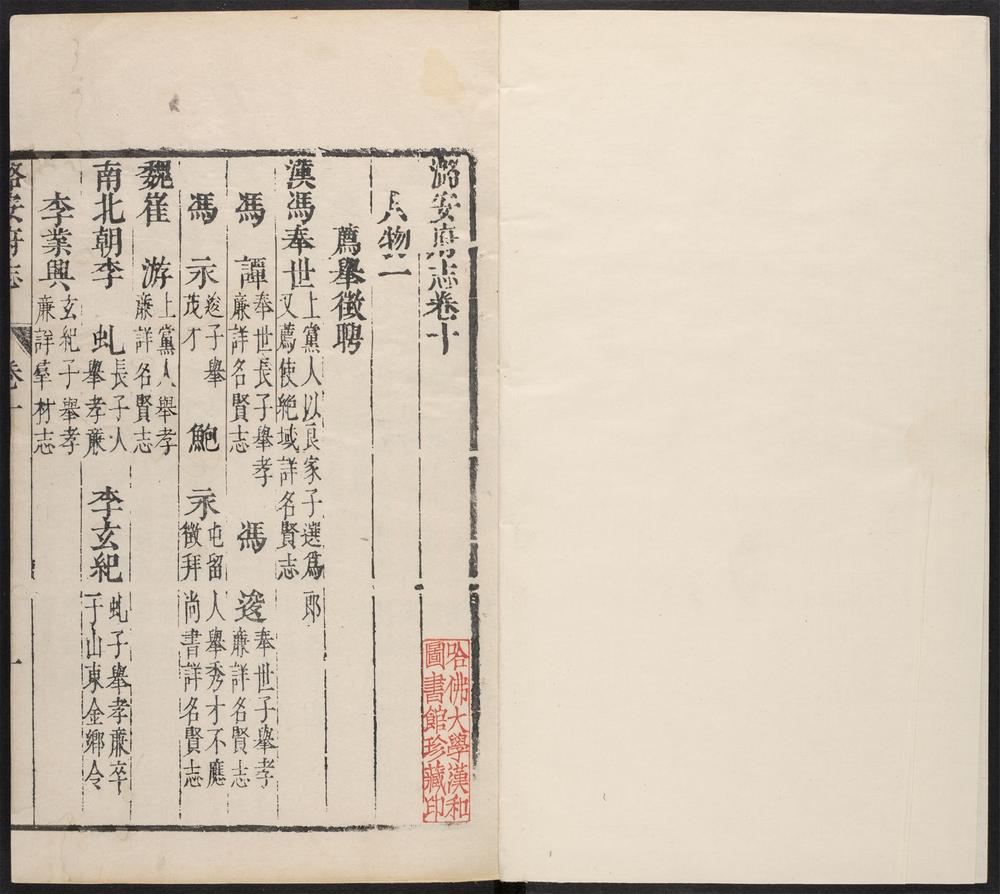 潞安府志卷十
人物二
薦舉徵聘
漢馮奉世上黨人以良家子選爲郎又薦使絶域詳名賢志
馮譚奉世長子舉孝廉詳名賢志 馮逡奉世子舉孝廉詳名賢志
馮永逡子舉茂才 鮑永屯留人舉秀才不應徵拜尚書詳名賢志
魏崔游上黨人舉孝廉詳名賢志
南北朝李虬長子人舉孝廉 李玄紀虬子舉孝廉卒于山東金鄉令
李業興玄紀子舉孝廉詳羣材志
潞安府志 卷十 一
哈佛大學漢和圖書館珍藏印